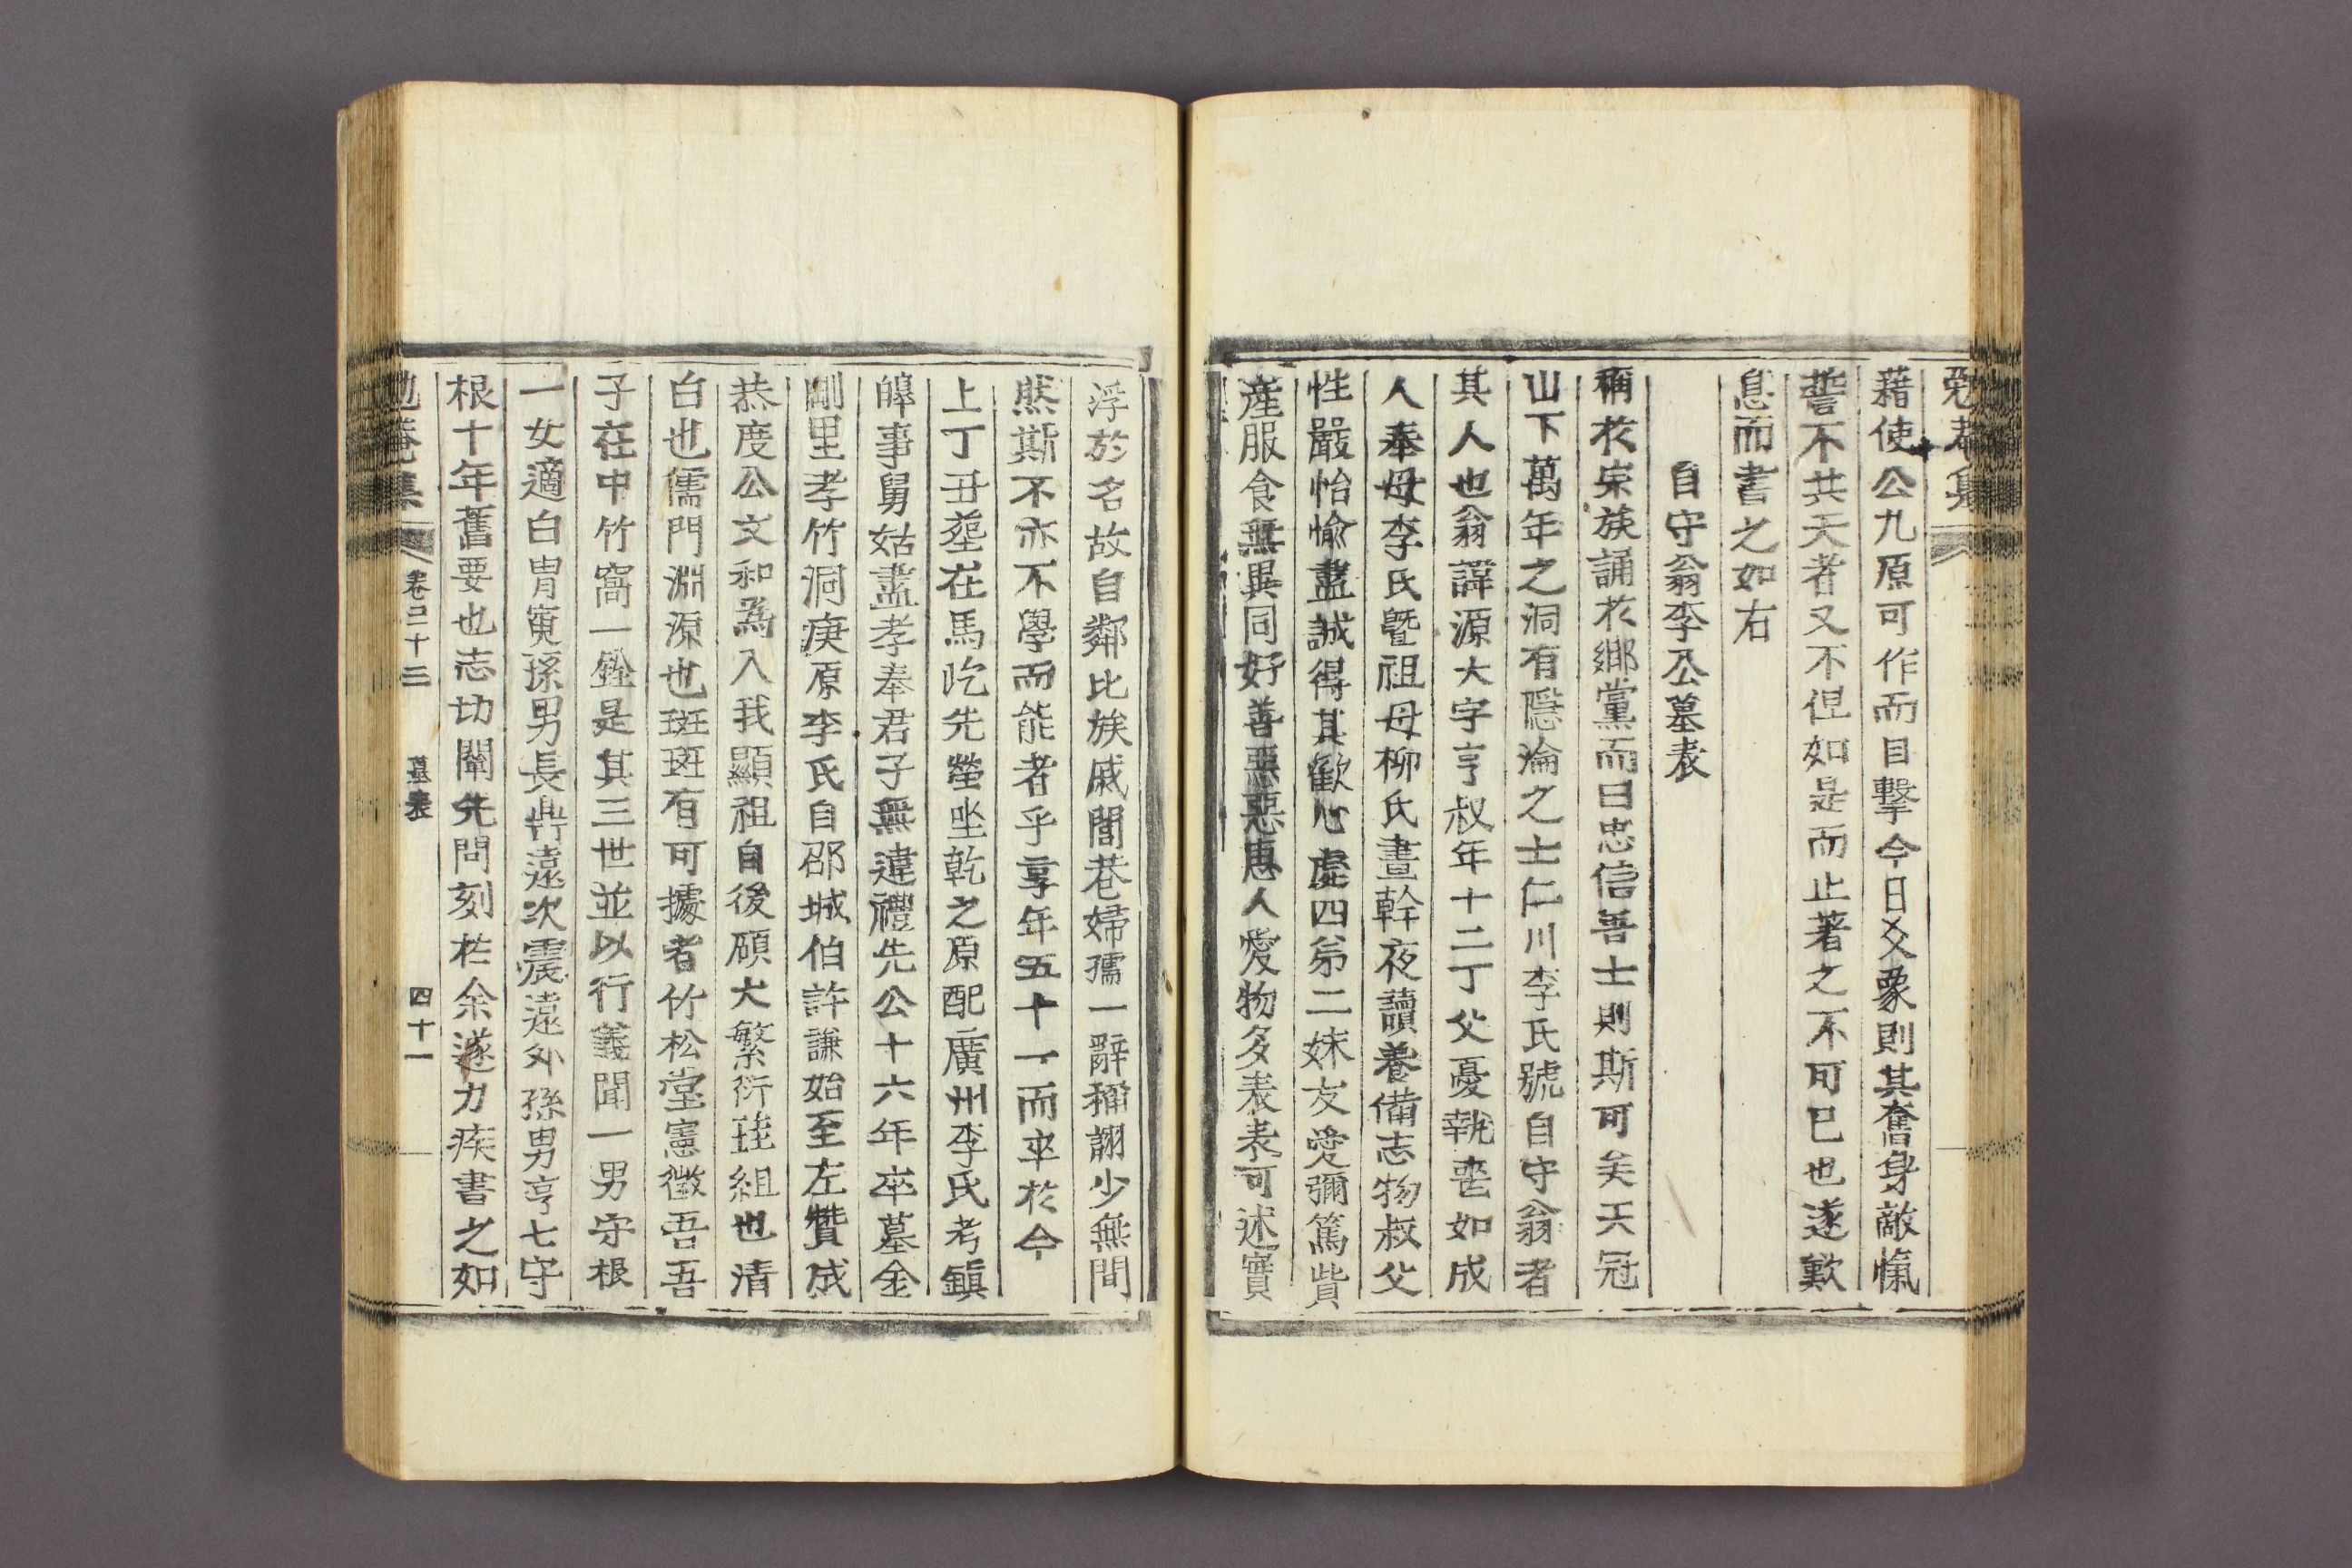 勉菴集
藉使公九原可作而目擊今日爻象則其奮身敵愾
誓不共天者又不但如是而止著之不可已也遂歎
息而書之如右
自守翁李公墓表
稱於宗族誦於鄕黨而曰忠信吾士則斯可矣天冠
山下萬年之洞有隱淪之士仁川李氏號自守翁者
其人也翁諱源大字亨叔年十二丁父憂執喪如成
人奉母李氏曁祖母柳氏晝幹夜讀養備志物叔父
性嚴怡愉盡誠得其歡心處四弟二妹友愛彌篤貲
產服食無異同好善惡惡惠人愛物多表表可述實
浮於名故自鄰比族戚閭巷婦孺一辭稱詡少無間
然斯不亦不學而能者乎享年五十一而卒於今
上丁丑葬在馬屹先塋坐乾之原配廣州李氏考鎭
皥事舅姑盡孝奉君子無違禮先公十六年卒墓金
剛里孝竹洞庚原李氏自邵城伯許謙始至左贊成
恭度公文和爲入我顯祖自後碩大繁衍珪組也淸
白也儒門淵源也斑斑有可據者竹松堂憲徵吾吾
子在中竹窩一銓是其三世並以行義聞一男守根
一女適白胄寅孫男長興遠次震遠外孫男亨七守
根十年舊要也志切闡先問刻於余遂力疾書之如
勉菴集 卷三十三 墓表 四十一